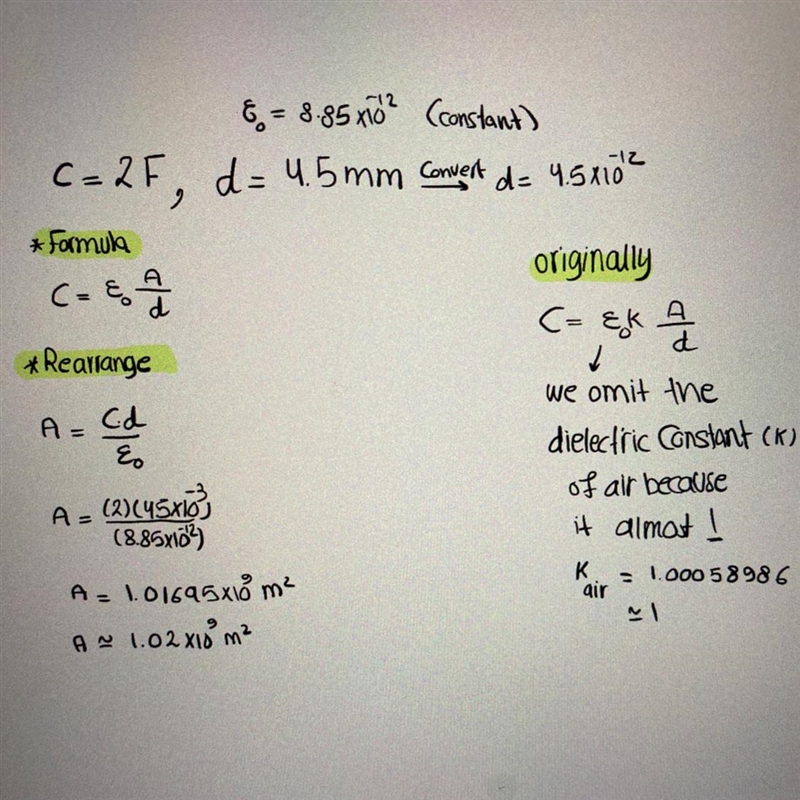 ε₀ = 8.85x10⁻¹² (constant)
C = 2F, d = 4.5mm Convert → d = 4.5x10⁻¹²
*Formula
C = ε₀ A/d
*Rearrange
A = Cd/ε₀
A = (2)(4.5x10⁻³)/(8.85x10⁻¹²)
A = 1.01695x10⁹ m²
A ≃ 1.02x10⁹ m²
originally
C = ε₀k A/d
↓
we omit the
dielectric Constant (K)
of air because
it almost 1
K air = 1.00058986
≃ 1